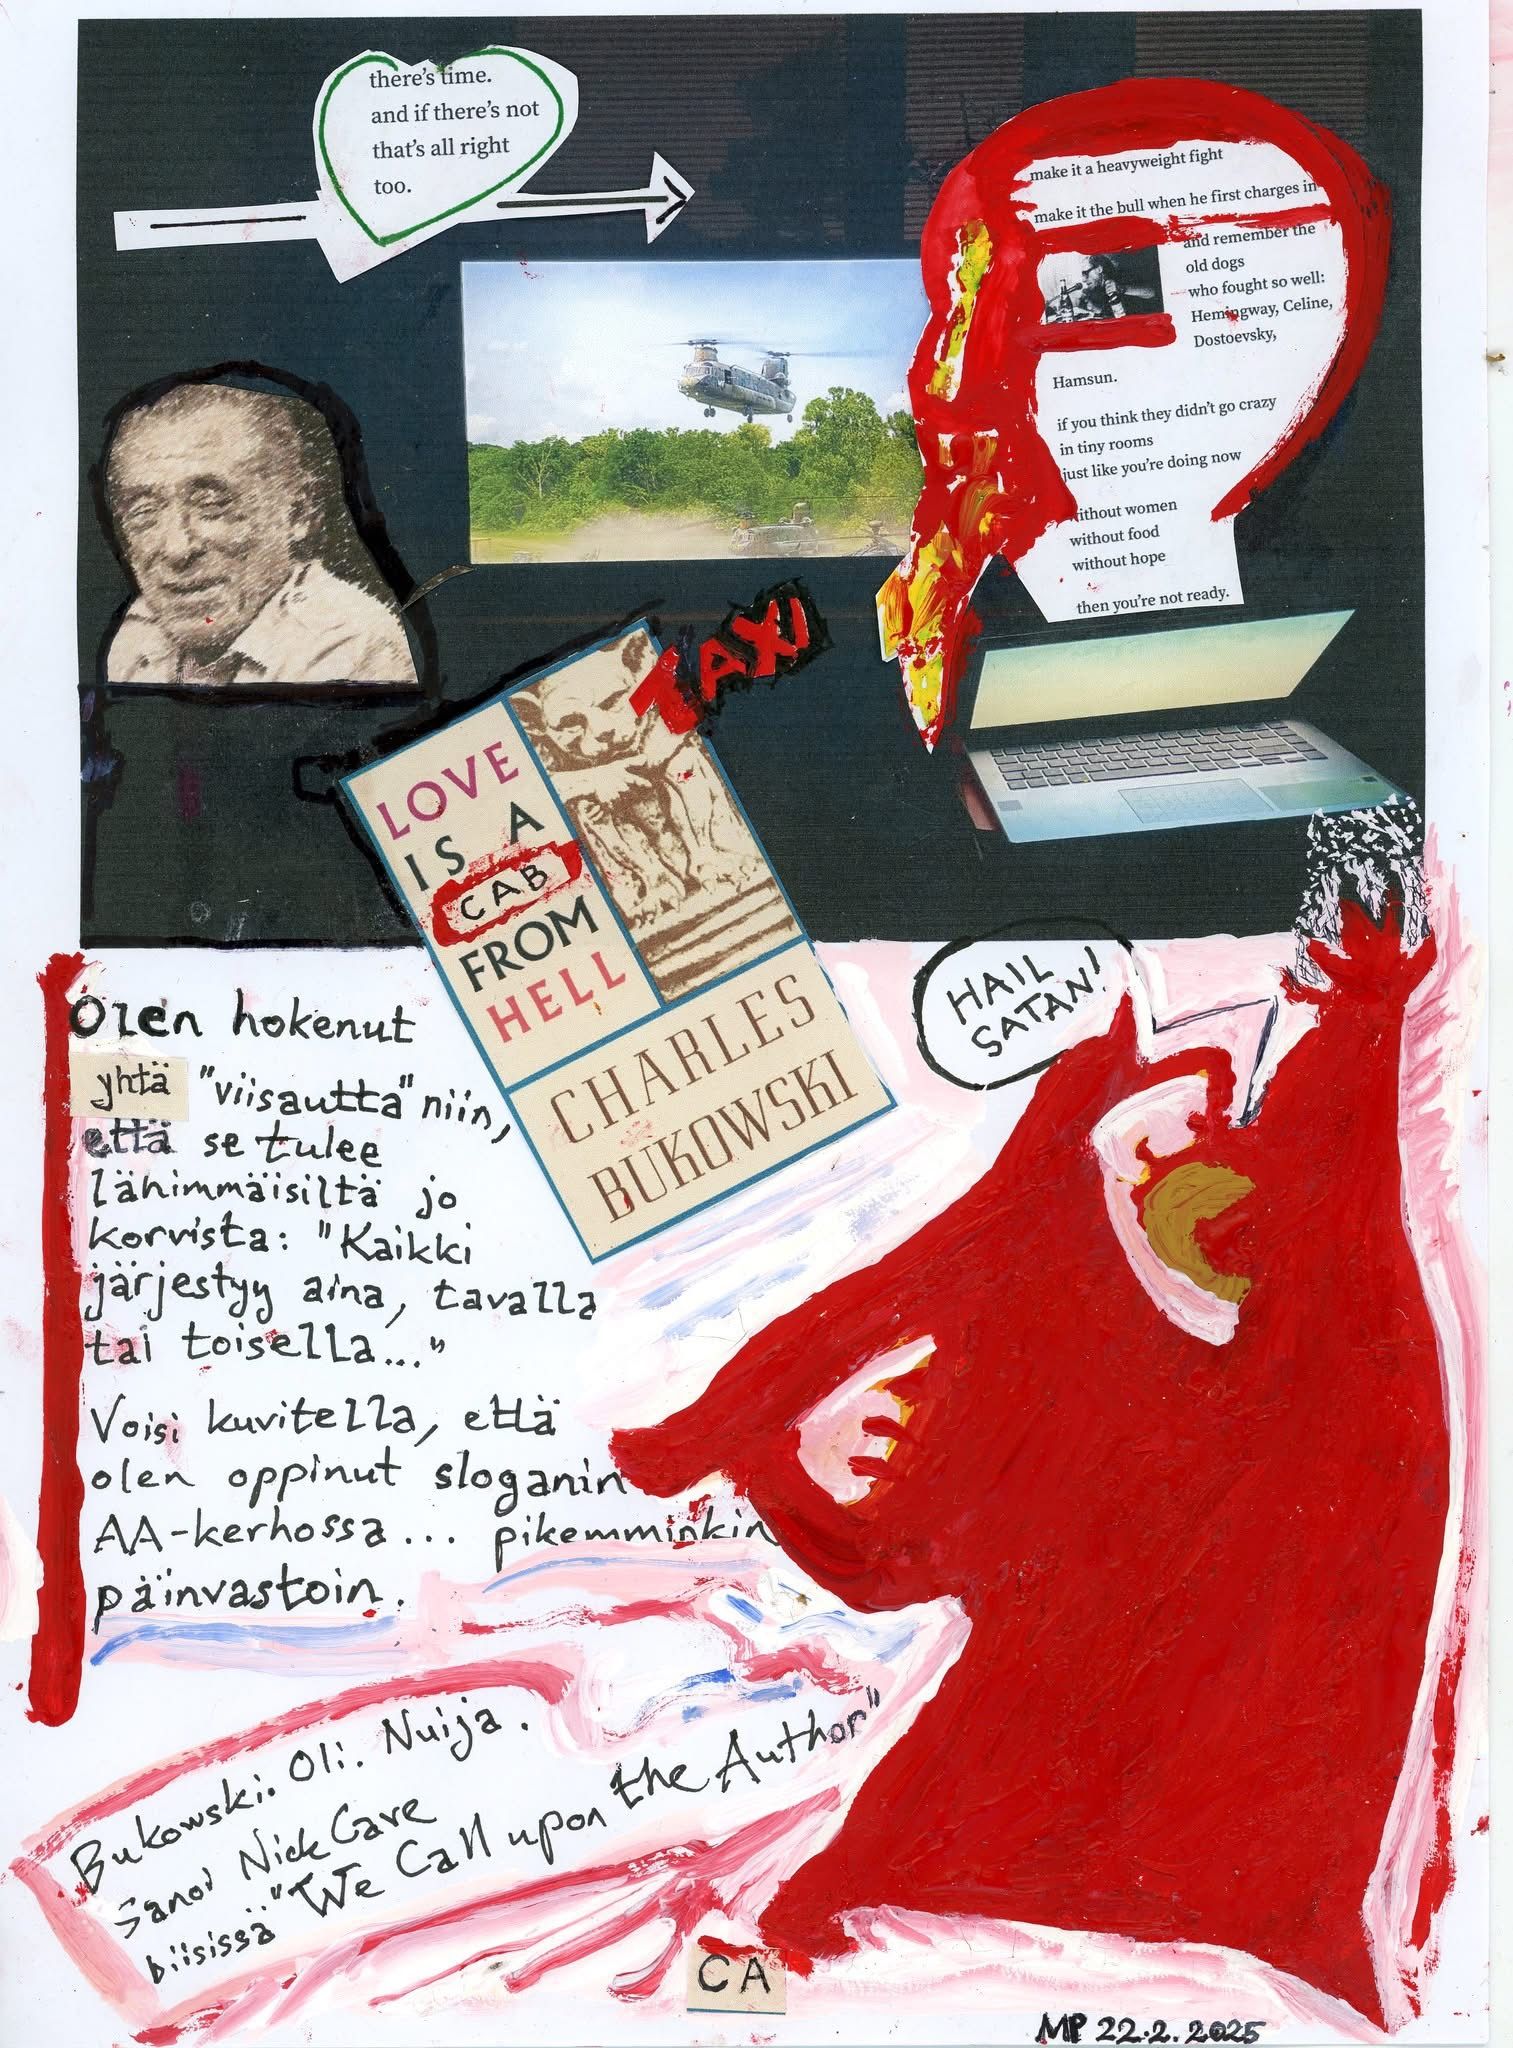 there's time.
and if there's not
that's all right
too.
make it a heavyweight fight
make it the bull when he first charges in
and remember the
old dogs
who fought so well:
Hemingway, Celine,
Dostoevsky,
Hamsun.
if you think they didn't go crazy
in tiny rooms
just like you're doing now
without women
without food
without hope
then you're not ready.
TAXI
LOVE
IS A
CAB
FROM
HELL
CHARLES
BUKOWSKI
HAIL
SATAN!
Olen hokenut
yhtä "viisautta" niin,
että se tulee
lähimmäisiltä jo
korvista: "Kaikki
järjestyy aina, tavalla
tai toisella..."
Voisi kuvitella, että
olen oppinut sloganin
AA-kerhossa... pikemminkin
päinvastoin.
Bukowski. Oli. Nuija.
Sanoi Nick Cave
biisissä "We Call upon the Author"
CA
MP 22.2.2025